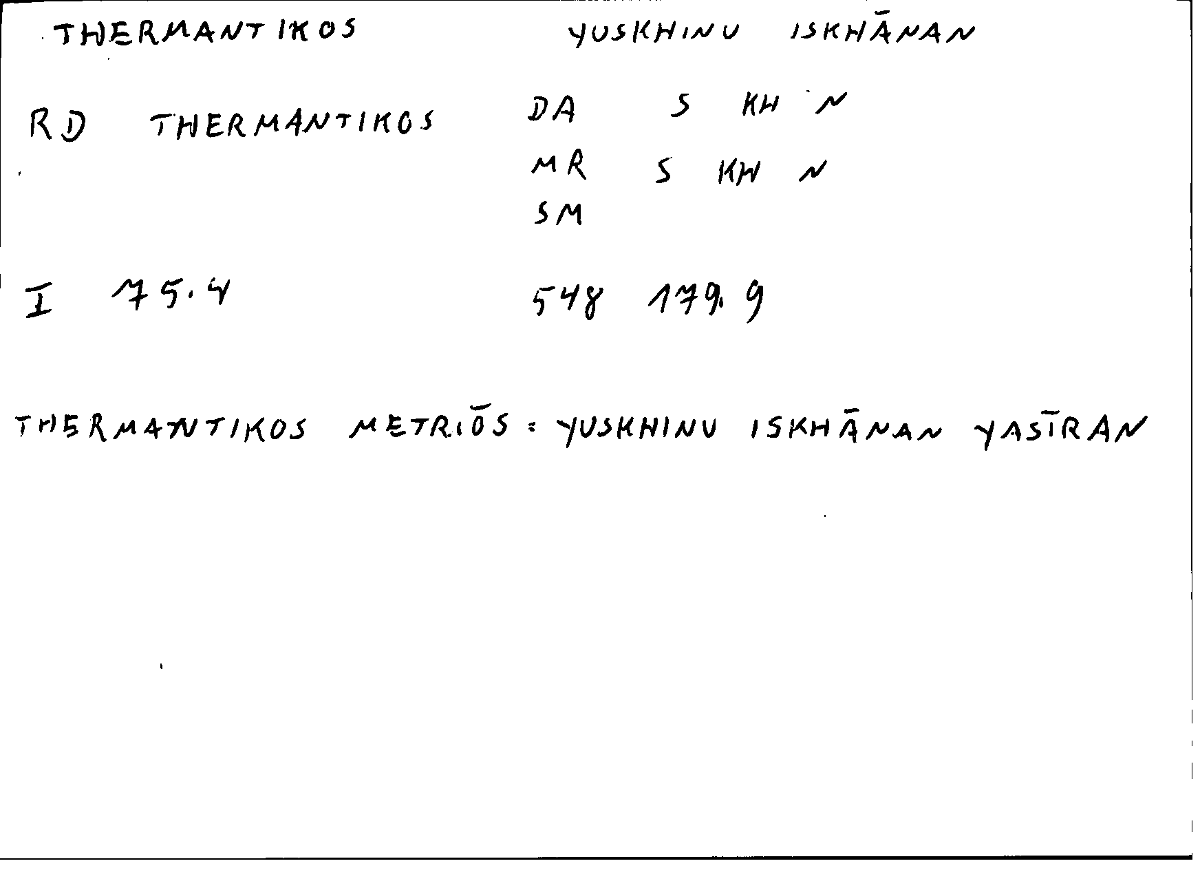 THERMANTIKOS YUSKHINU ISKHĀNAN
RD THERMANTIKOS DA S KH N
MR S KH N
SM
I 75.4 548 179.9
THERMANTIKOS METRIŌS = YUSKHINU ISKHĀNAN YASĪRAN